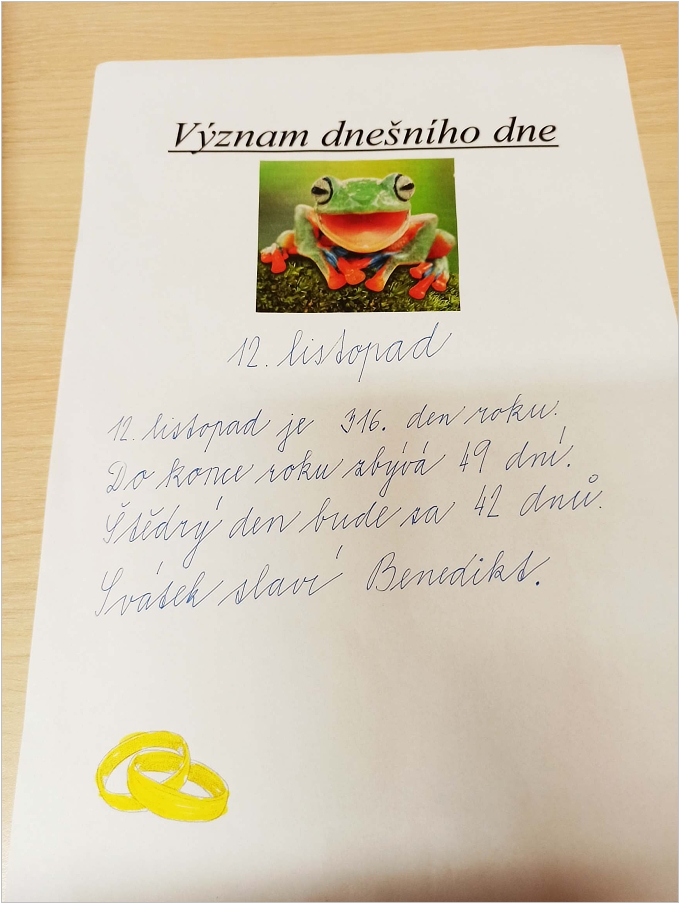 Význam dnešního dne
12. listopad
12. listopad je 316. den roku.
Do konce roku zbývá 49 dní.
Štědrý den bude za 42 dnů.
Svátek slaví Benedikt.